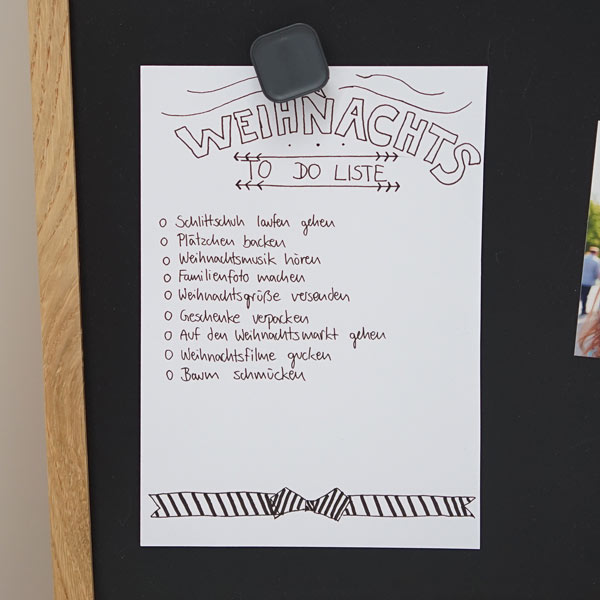 WEIHNACHTS
TO DO LISTE
o Schlittschuh laufen gehen
o Plätzchen backen
o Weihnachtsmusik hören
o Familienfoto machen
o Weihnachtsgrüße versenden
o Geschenke verpacken
o Auf den Weihnachtsmarkt gehen
o Weihnachtsfilme gucken
o Baum schmücken